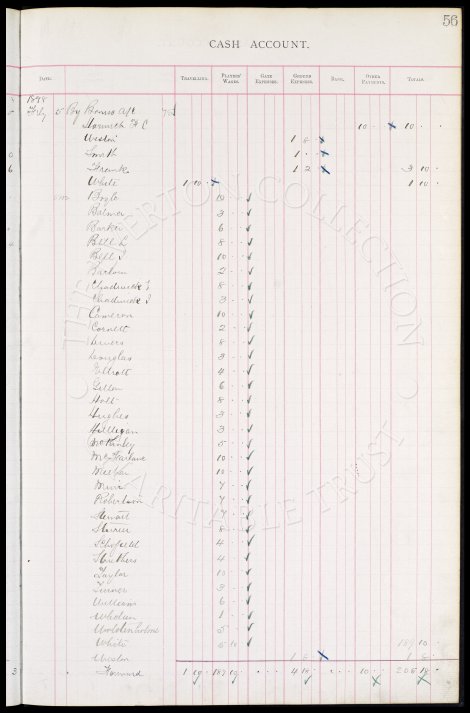 56
CASH ACCOUNT.
DATE. TRAVELLING. PLAYERS' WAGES. GATE EXPENSES. GROUND EXPENSES. BANK. OTHER PAYMENTS. TOTALS.
1898
Feby 5 By Bonus A/c
Norwich F C 10 10
Weston 1 8
Smith 1
Frank 1 2 3 10
White 1 10 1 10
Boyle 10
Balmer 3
Barker 6
Bell L 8
Bell J 10
Barlow 2
Chadwick E 8
Chadwick J 3
Cameron 10
Cornett 2
8
Douglas 3
Elliott 4
Gillow 6
Holt 8
Hughes 3
Hilligan 3
McKinley 5
McFarlane 10
Meehan 10
Muir 7
Robertson 7
Stewart
Storrier 8
Schofield 4
Struthers 4
Taylor 10
Turner 3
Williams 6
Whelan 1
Wolstenholme 5
White 5 10 189 10
Weston 1 8 1 8
Forward 1 10 189 10 4 18 10 205 18
THE EVERTON COLLECTION
CHARITABLE TRUST